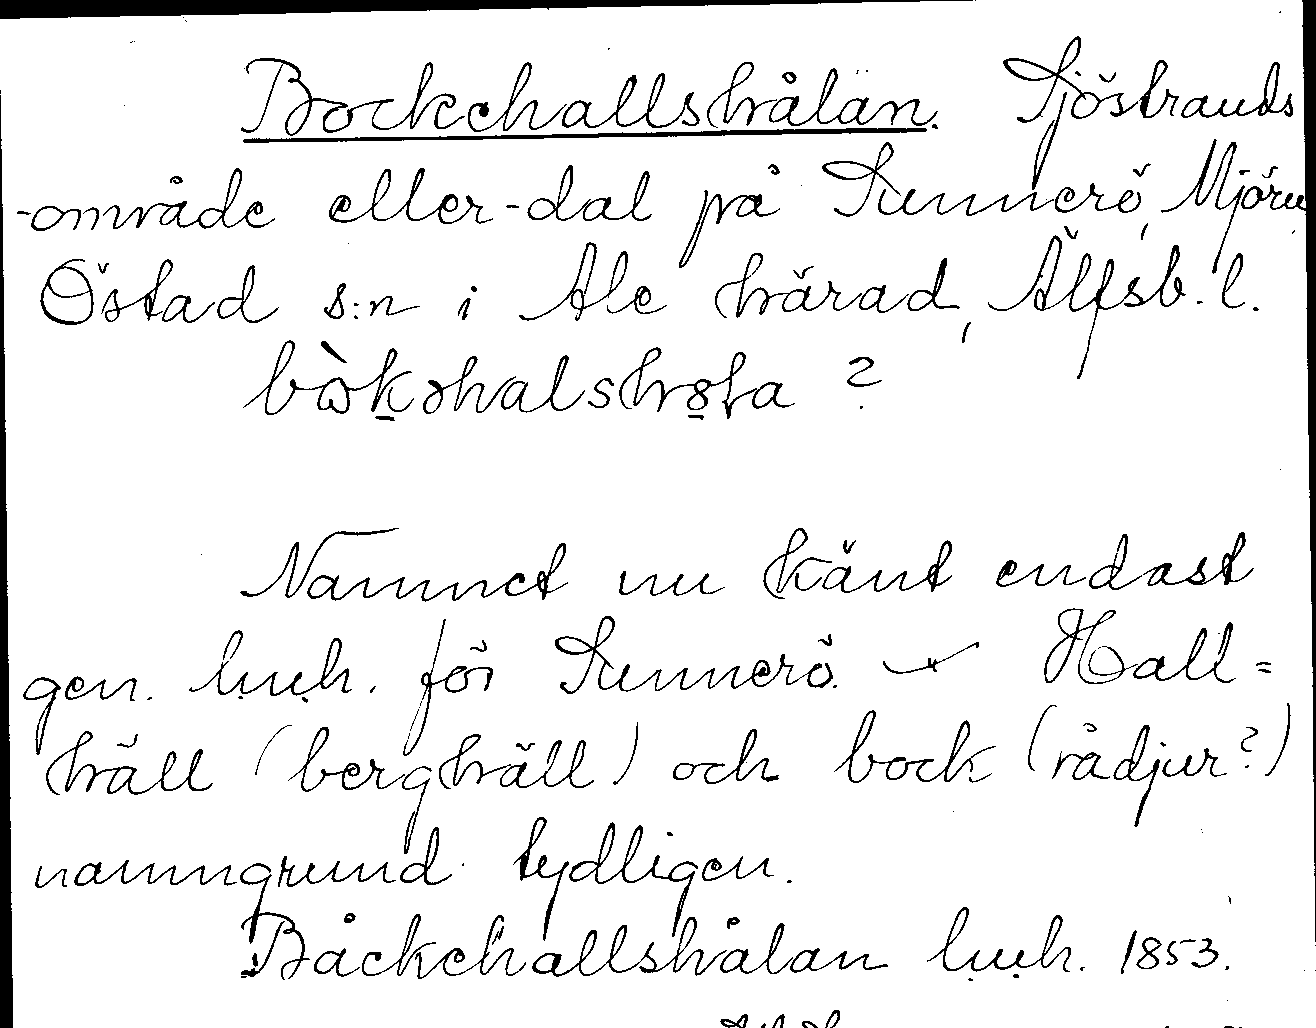 Bockehallshålan. Sjöstrands
-område eller -dal på Kunnerö, Mjörn
Östad s:n i Ale härad, Älfsb. l.
bòkəhalshola ?
Namnet nu känt endast
gen. l.u.h. för Kunnerö. Hall =
häll (berghäll) och bock (rådjur?)
namngrund tydligen.
Båckehallshålan l.u.h. 1853.